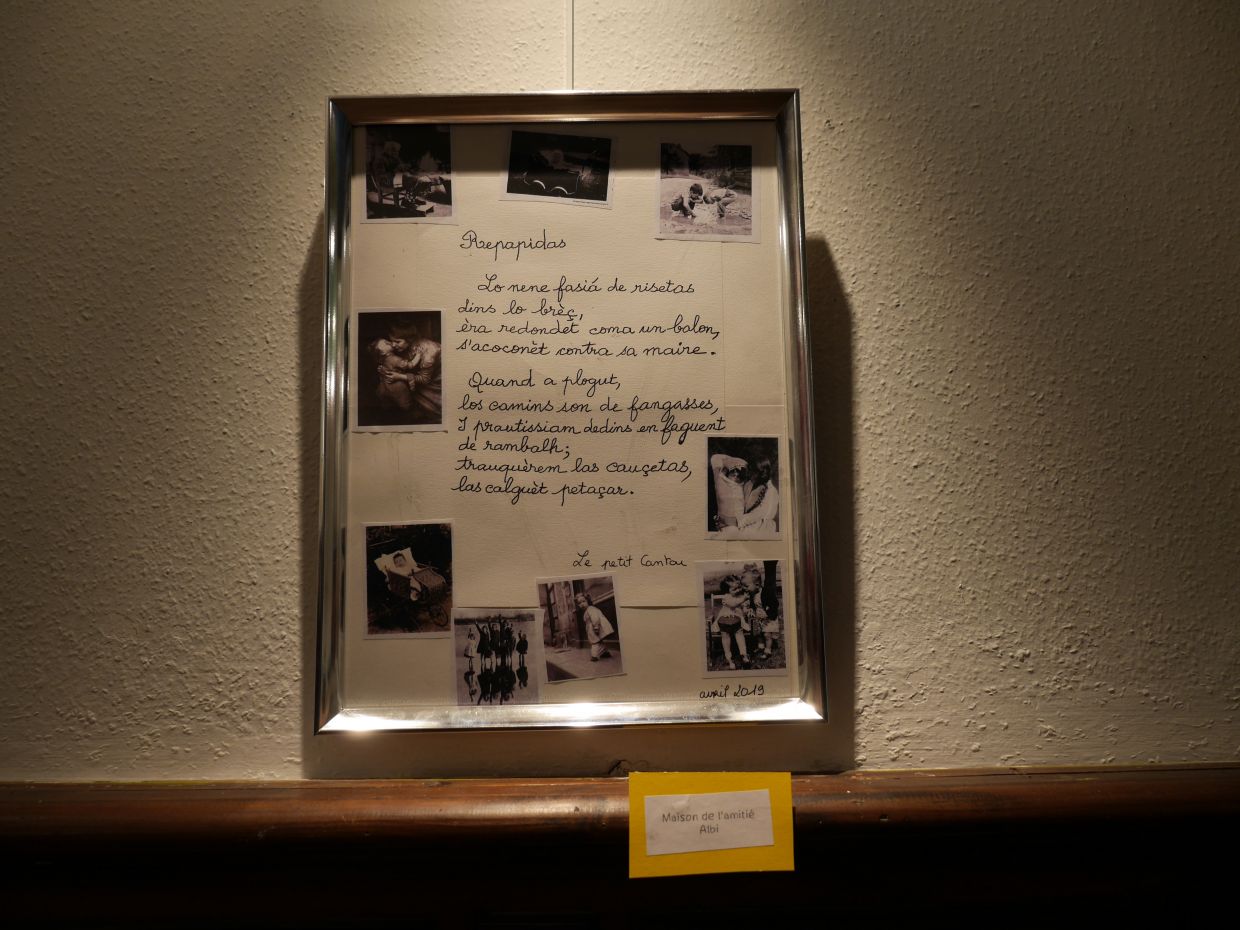 Repapidas
Lo nene fasiá de risetas
dins lo brèç,
èra redondèt coma un balon,
s'acoconèt contra sa maire.
Quand a plogut,
los camins son de fangasses,
I prautissiam dedins en faguent
de rambalh;
trauquèrem las cauçetas,
las calguèt petaçar.
Le petit Cantou
avril 2019
Maison de l'amitié
Albi